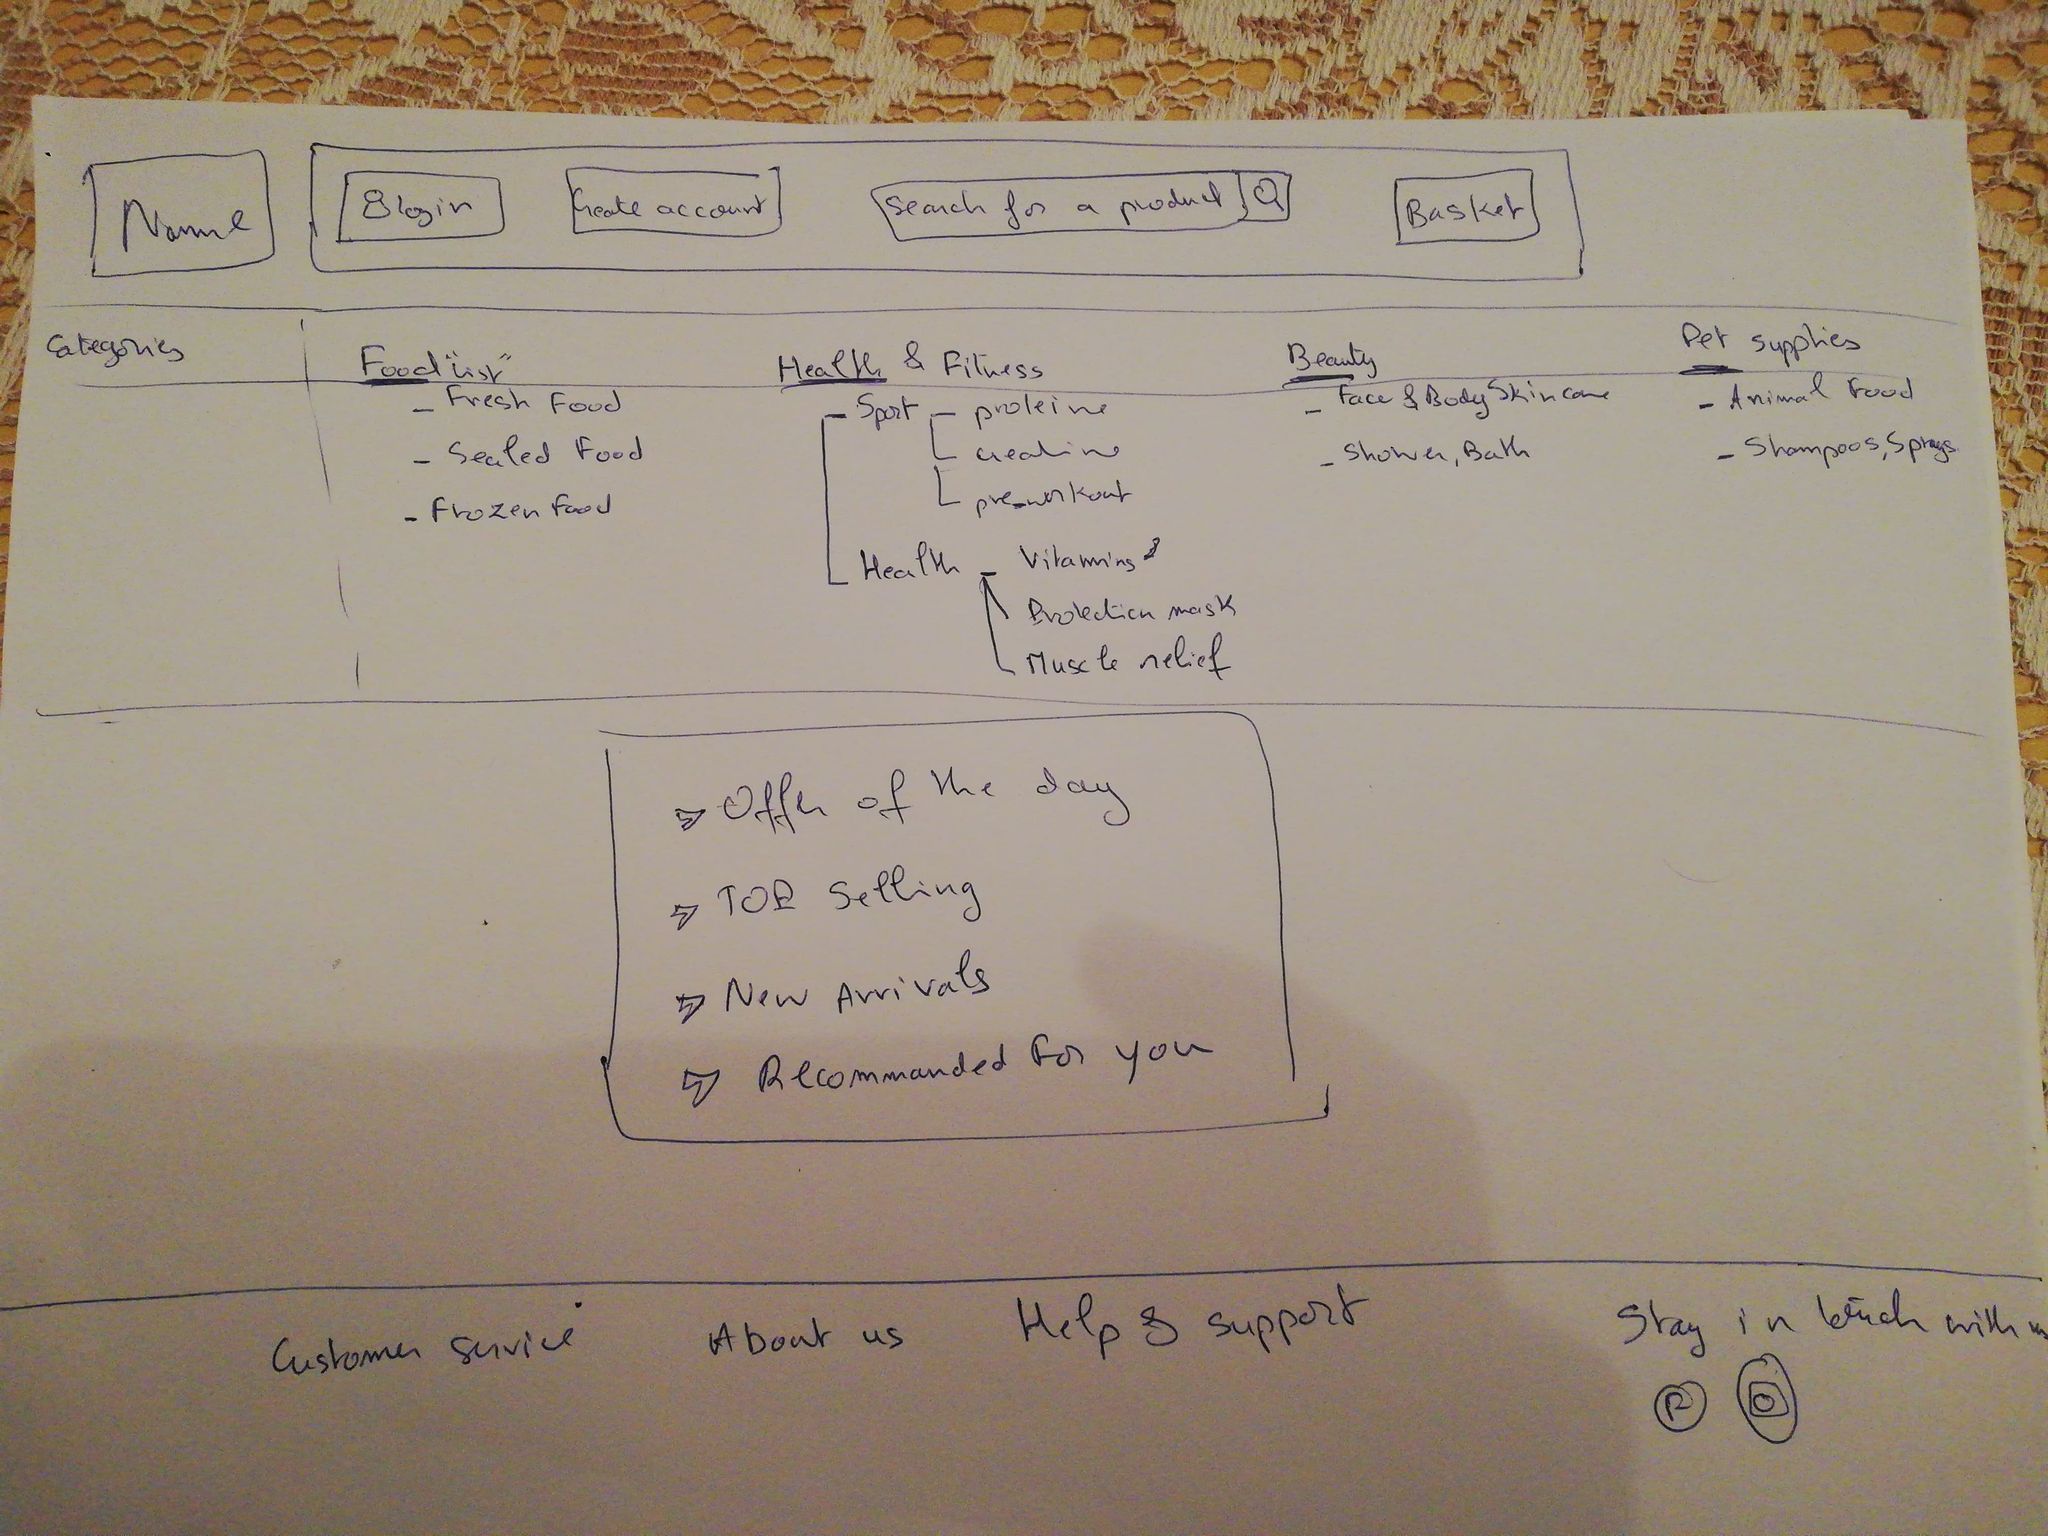 Name
login
Create account
Search for a product
Basket
Categories
Food "list"
- Fresh Food
- Sealed Food
- Frozen Food
Health & Fitness
- Sport - proteine
creatine
pre-workout
Health - Vitamins
Protection mask
Muscle relief
Beauty
- Face & Body Skin care
- Shower, Bath
Pet supplies
- Animal Food
- Shampoos, Sprays
⇒ Offer of the day
⇒ TOP Selling
⇒ New Arrivals
⇒ Recommanded For you
Customer service
About us
Help & support
Stay in touch with us